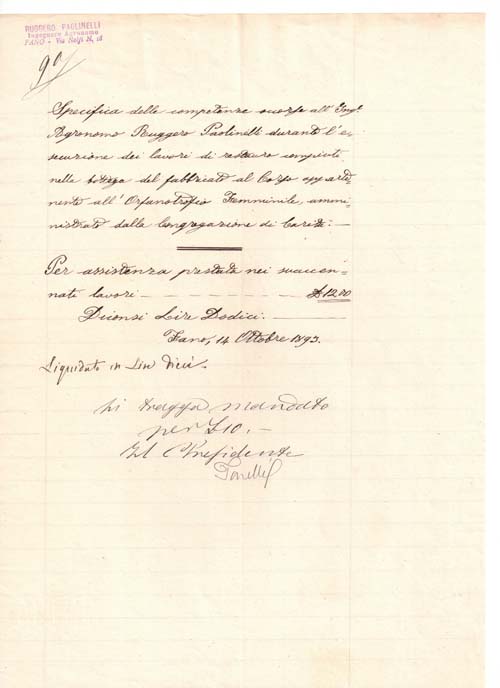 RUGGERO PAOLINELLI
Ingegnere Agronomo
FANO - Via Nolfi N, 18
9º
Specifica delle competenze occorse all'Ing.
Agronomo Ruggero Paolinelli durante l'e-
secuzione dei lavori di restauro compiuti
nella bottega del fabbricato al Corso apparte-
nente all'Orfanotrofio Femminile, ammi-
nistrato dalla Congregazione di Carità.—
Per assistenza prestata nei succen-
nati lavori — £12.00
Diconsi Lire Dodici.—
Fano, 14 Ottobre 1893.
Liquidato in Lire Dieci.
Si tragga mandato
per £10.—
Il Presidente